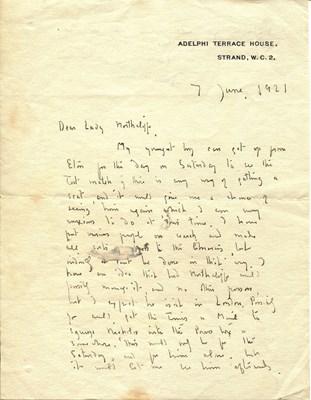 ADELPHI TERRACE HOUSE,
STRAND, W.C.2.
7 June, 1921
Dear Lady Northcliffe
My youngest boy can get up from
Eton for the day on Saturday to see the
Test match if there is any way of getting a
seat, and it would give me a chance of
seeing him again which I am very
anxious to do at this time. I have
put various people on search and made
all sorts to the libraries but
nothing can be done in that way. I
have an idea that Lord Northcliffe could
possibly manage it, and no other person
but I expect he isn't in London. Possibly
he could get the Times or Mail to
squeeze Nicholas into the Press box or
somewhere. This would only be for the
Saturday, and for him alone, but
it would let me see him afterwards.